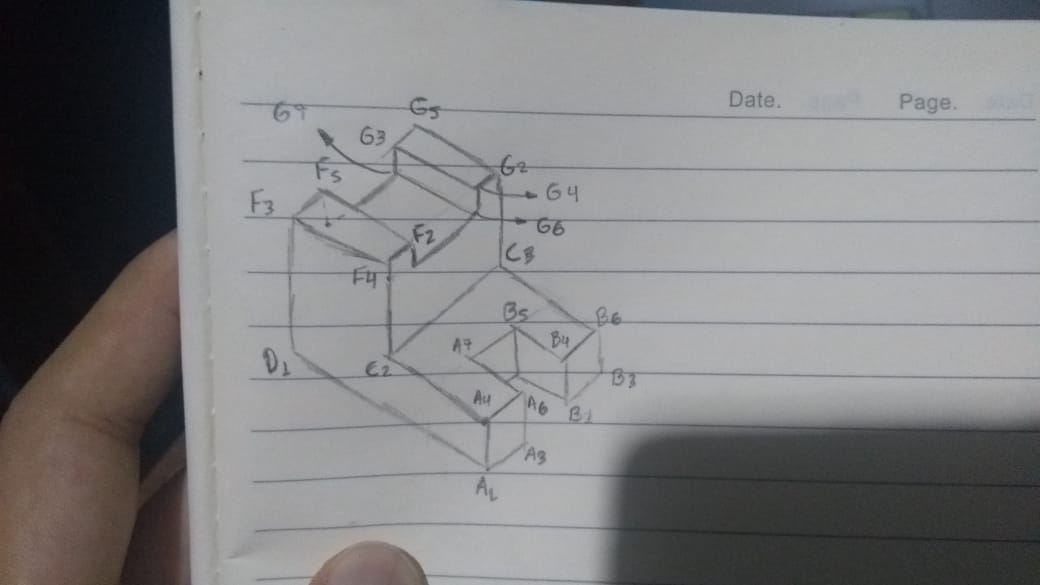 Date.
Page.
G5
G7
G3
G2
F5
G4
F3
G6
F2
C3
F4
B5
B6
A7
B4
D1
C2
B3
A4
A6
B1
A3
A1